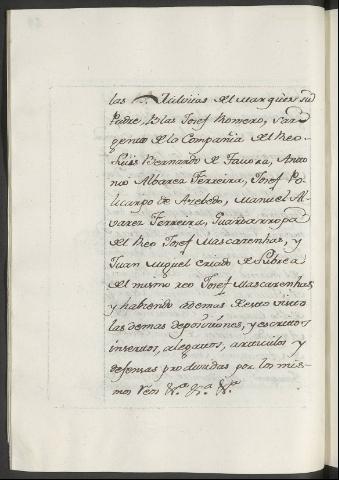 las Milicias del Marques su
Padre, Blas Josef Romero, Sar
gento de la Compañia del Reo
Luis Bernardo de Tavora, Anto
nio Albarea Ferreira, Josef Po
licarpo de Azebedo, Manuel Al
varez Ferreira, Guardarropa
del Reo Josef Mascarenhas, y
Juan Miguel criado de
del mismo reo Josef Mascarenhas,
y habiendo ademas de esto visto
las demas deposiciones, y escritos
insertos, alegatos, articulos y
defensas producidas por los mis-
mos reos &.ª &.ª &.ª